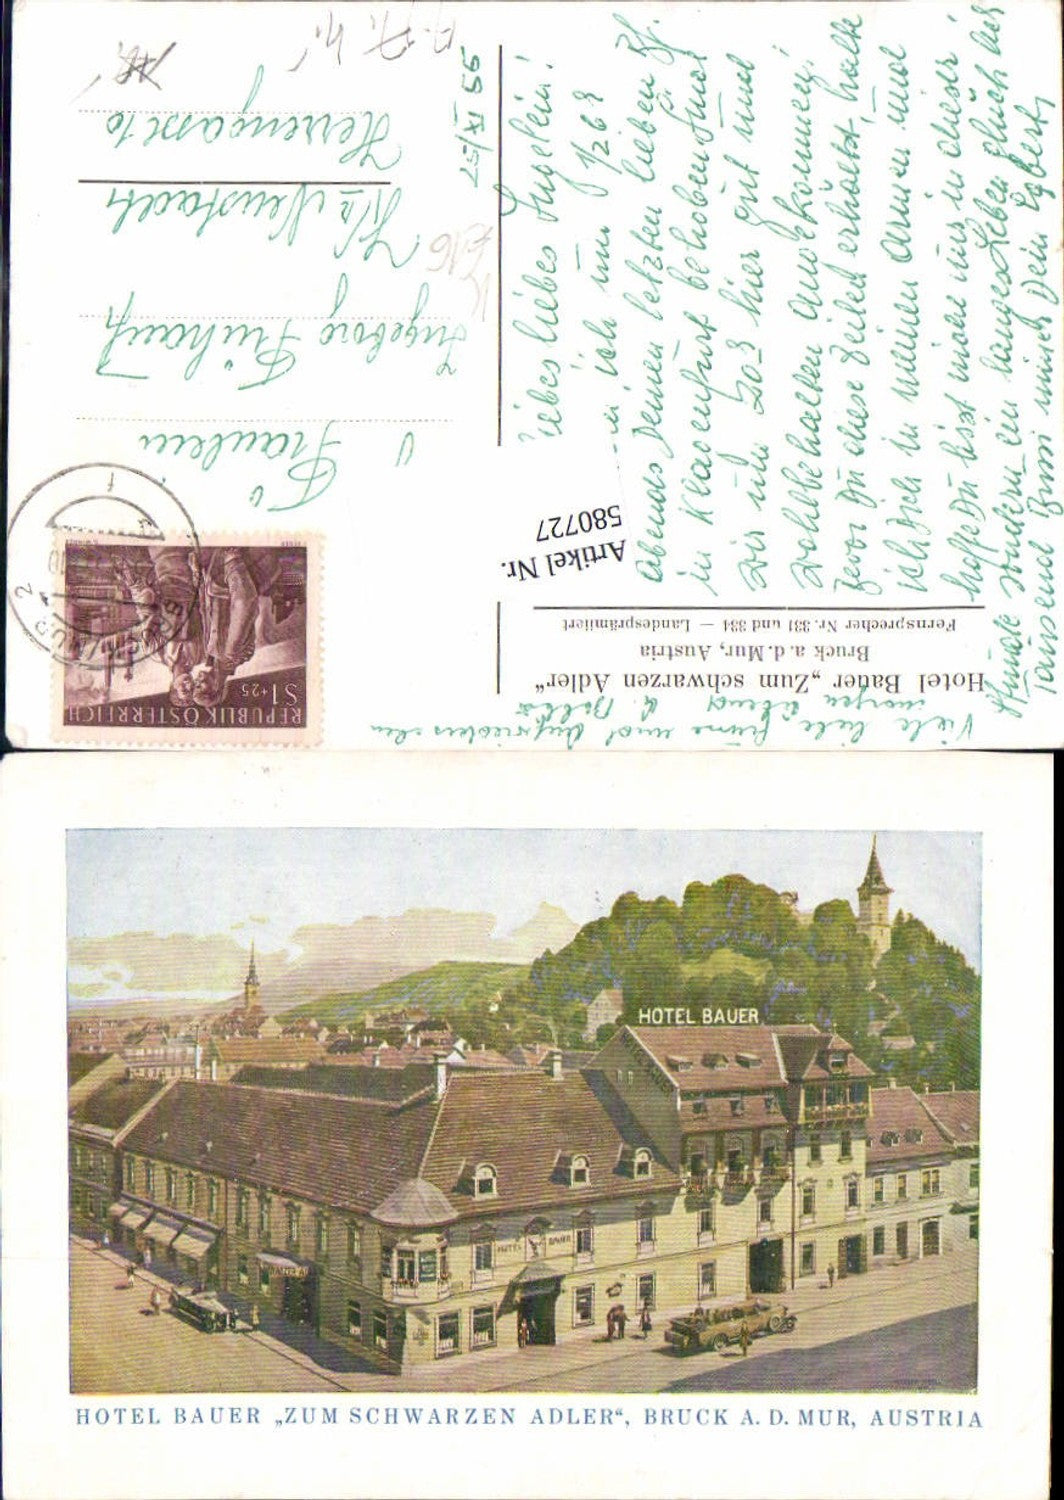 Hotel Bauer „Zum schwarzen Adler“
Bruck a. d. Mur, Austria
Fernsprecher Nr. 331 und 334 — Landesprämiiert
Artikel Nr.
580727
REPUBLIK ÖSTERREICH
S1+25
BRUCK MUR 2
Fräulein
Ingeborg Frühauf
Neustadt
Herrengasse 10
25/IX 55
liebes liebes Ingelein!
ich um 1/2 6 h
abends Deinen letzten lieben Bf.
in Klagenfurt behoben und
bin um 20 h hier gut und
wohlbehalten angekommen!
Bevor Du diese Zeilen erhältst, halte
ich Dich in meinen Armen und
hoffe Du bist nicht nur in dieser
Stunde sondern ein langes Leben glücklich
tausend Bussi immer Dein
Viele liebe Grüße und Aufwiedersehen
morgen abend
HOTEL BAUER
HOTEL BAUER
HOTEL BAUER „ZUM SCHWARZEN ADLER“, BRUCK A. D. MUR, AUSTRIA